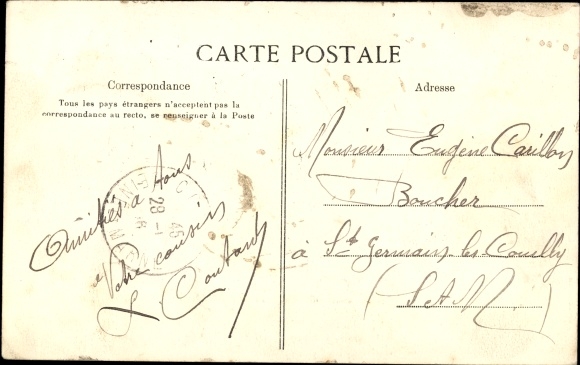 CARTE POSTALE
Correspondance
Tous les pays étrangers n'acceptent pas la
correspondance au recto, se renseigner à la Poste
Amitiés à tous
Votre cousin
L Coutant
Adresse
Monsieur Eugène Carillon
Boucher
à St Germain les Couilly
(S et M)